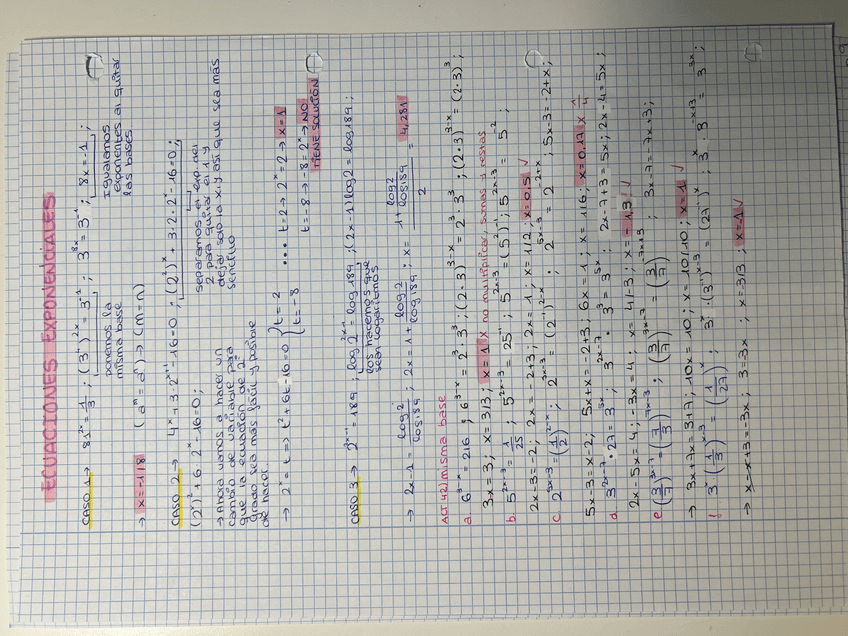 ECUACIONES EXPONENCIALES
CASO 1 → 81^2x = 1/3 ; (3^4)^2x = 3^-1 ; 3^8x = 3^-1 ; 8x = -1 ;
ponemos la misma base
Igualamos exponentes al quitar las bases
→ x = -1/8 (a^m = a^n) → (m=n)
CASO 2 → 4^x + 3·2^x+1 - 16 = 0 ; (2^2)^x + 3·2·2^x - 16 = 0 ;
(2^x)^2 + 6·2^x - 16 = 0 ;
separamos el exp. del 2 para quitar el 1 y dejar solo la x, y así que sea más sencillo
→ Ahora vamos a hacer un cambio de variable para que la ecuación de 2º grado sea más fácil y posible de hacer.
→ 2^x = t => t^2 + 6t - 16 = 0 { t = 2
t = -8
... t = 2 → 2^x = 2 → x = 1
t = -8 → -8 = 2^x → NO TIENE SOLUCIÓN
CASO 3 → 2^2x-1 = 189 ; log 2^2x-1 = log 189 ; (2x-1) log 2 = log 189 ;
los hacemos que sean logaritmos
→ 2x-1 = log 2 / log 189 ; 2x = 1 + log 2 / log 189 ; x = (1 + log 2 / log 189) / 2 = 4,281
ACT 42) misma base
a 6^3-x = 216 ; 6^3-x = 2^3·3^3 ; (2·3)^3-x = 2^3·3^3 ; (2·3)^3-x = (2·3)^3 ;
3x = 3 ; x = 3/3 ; x = 1 x no multiplicar, sumas y restas
b. 5^2x-3 = 1/25 ; 5^2x-3 = 25^-1 ; 5^2x-3 = (5^2)^-1 ; 5^2x-3 = 5^-2 ;
2x-3 = -2 ; 2x = -2+3 ; 2x = 1 ; x = 1/2 ; x = 0,5 √
c. 2^5x-3 = (1/2)^2-x ; 2^5x-3 = (2^-1)^2-x ; 2^5x-3 = 2^-2+x ; 5x-3 = -2+x ;
5x-3 = x-2 ; 5x+x = -2+3 ; 6x = 1 ; x = 1/6 ; x = 0,17 x 1/4
d. 3^2x-7·27 = 3^5x ; 3^2x-7·3^3 = 3^5x ; 2x-7+3 = 5x ; 2x-4 = 5x ;
2x-5x = 4 ; -3x = 4 ; x = 4/-3 ; x = -1,3 √
e (3/7)^3x-7 = (7/3)^7x-3 ; (3/7)^3x-7 = (3/7)^-7x+3 ; 3x-7 = -7x+3 ;
→ 3x+7x = 3+7 ; 10x = 10 ; x = 10/10 ; x = 1 √
f 3^x (1/3)^x-3 = (1/27)^x ; 3^x·(3^-1)^x-3 = (27^-1)^x ; 3^x·3^-x+3 = 3^-3x ;
→ x-x+3 = -3x ; 3 = -3x ; x = -3/3 ; x = -1 √